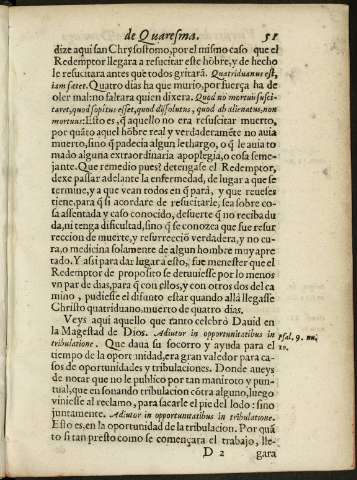 de Quaresma. 51
dize aqui san Chrysostomo, por el mismo caso que el
Redemptor llegara a resucitar este hõbre, y de hecho
le resucitara antes que todos gritarã. Quatriduanus est,
iam fœtet. Quatro dias ha que murio, por fuerça ha de
oler mal: no faltara quien dixera. Quod nõ mortuũ susci-
taret, quod sopitus esset, quod dissolutus, quod ab alienatus, non
mortuus: Esto es, q̃ aquello no era resuscitar muerto,
por quãto aquel hõbre real y verdaderamẽte no auia
muerto, sino q̃ padecia algun lethargo, o q̃ le auia to
mado alguna extraordinaria apoplegia, o cosa seme-
jante. Que remedio pues? detengase el Redemptor,
dexe passar adelante la enfermedad, de lugar a que se
termine, y a que vean todos en q̃ pará, y que reueses
tiene, para q̃ si acordare de resucitarle, sea sobre co-
sa assentada y caso conocido, desuerte q̃ no reciba du
da, ni tenga dificultad, sino q̃ se conozca que fue resur
reccion de muerte, y resurrecciõ verdadera, y no cu-
ra, o medicina solamente de algun hombre muy apre
tado. Y assi para dar lugar a esto, fue menester que el
Redemptor de proposito se detuuiesse por lo menos
vn par de dias, para q̃ con ellos, y con otros dos del ca
mino, pudiesse el difunto estar quando allá llegasse
Christo quatriduano, muerto de quatro dias.
Veys aqui aquello que tanto celebrò Dauid en
la Magestad de Dios. Adiutor in opportunitatibus in
tribulatione. Que daua su socorro y ayuda para el
tiempo de la oportunidad, era gran valedor para ca-
sos de oportunidades y tribulaciones. Donde aueys
de notar que no le publico por tan maniroto y pun-
tual, que en sonando tribulacion cõtra alguno, luego
viniesse al reclamo, para sacarle el pie del lodo: sino
juntamente. Adiutor in opportunitatibus in tribulatione.
Esto es, en la oportunidad de la tribulacion. Por quã
to si tan presto como se començara el trabajo, lle-
D 2 gara
psal. 9. nu.
10.